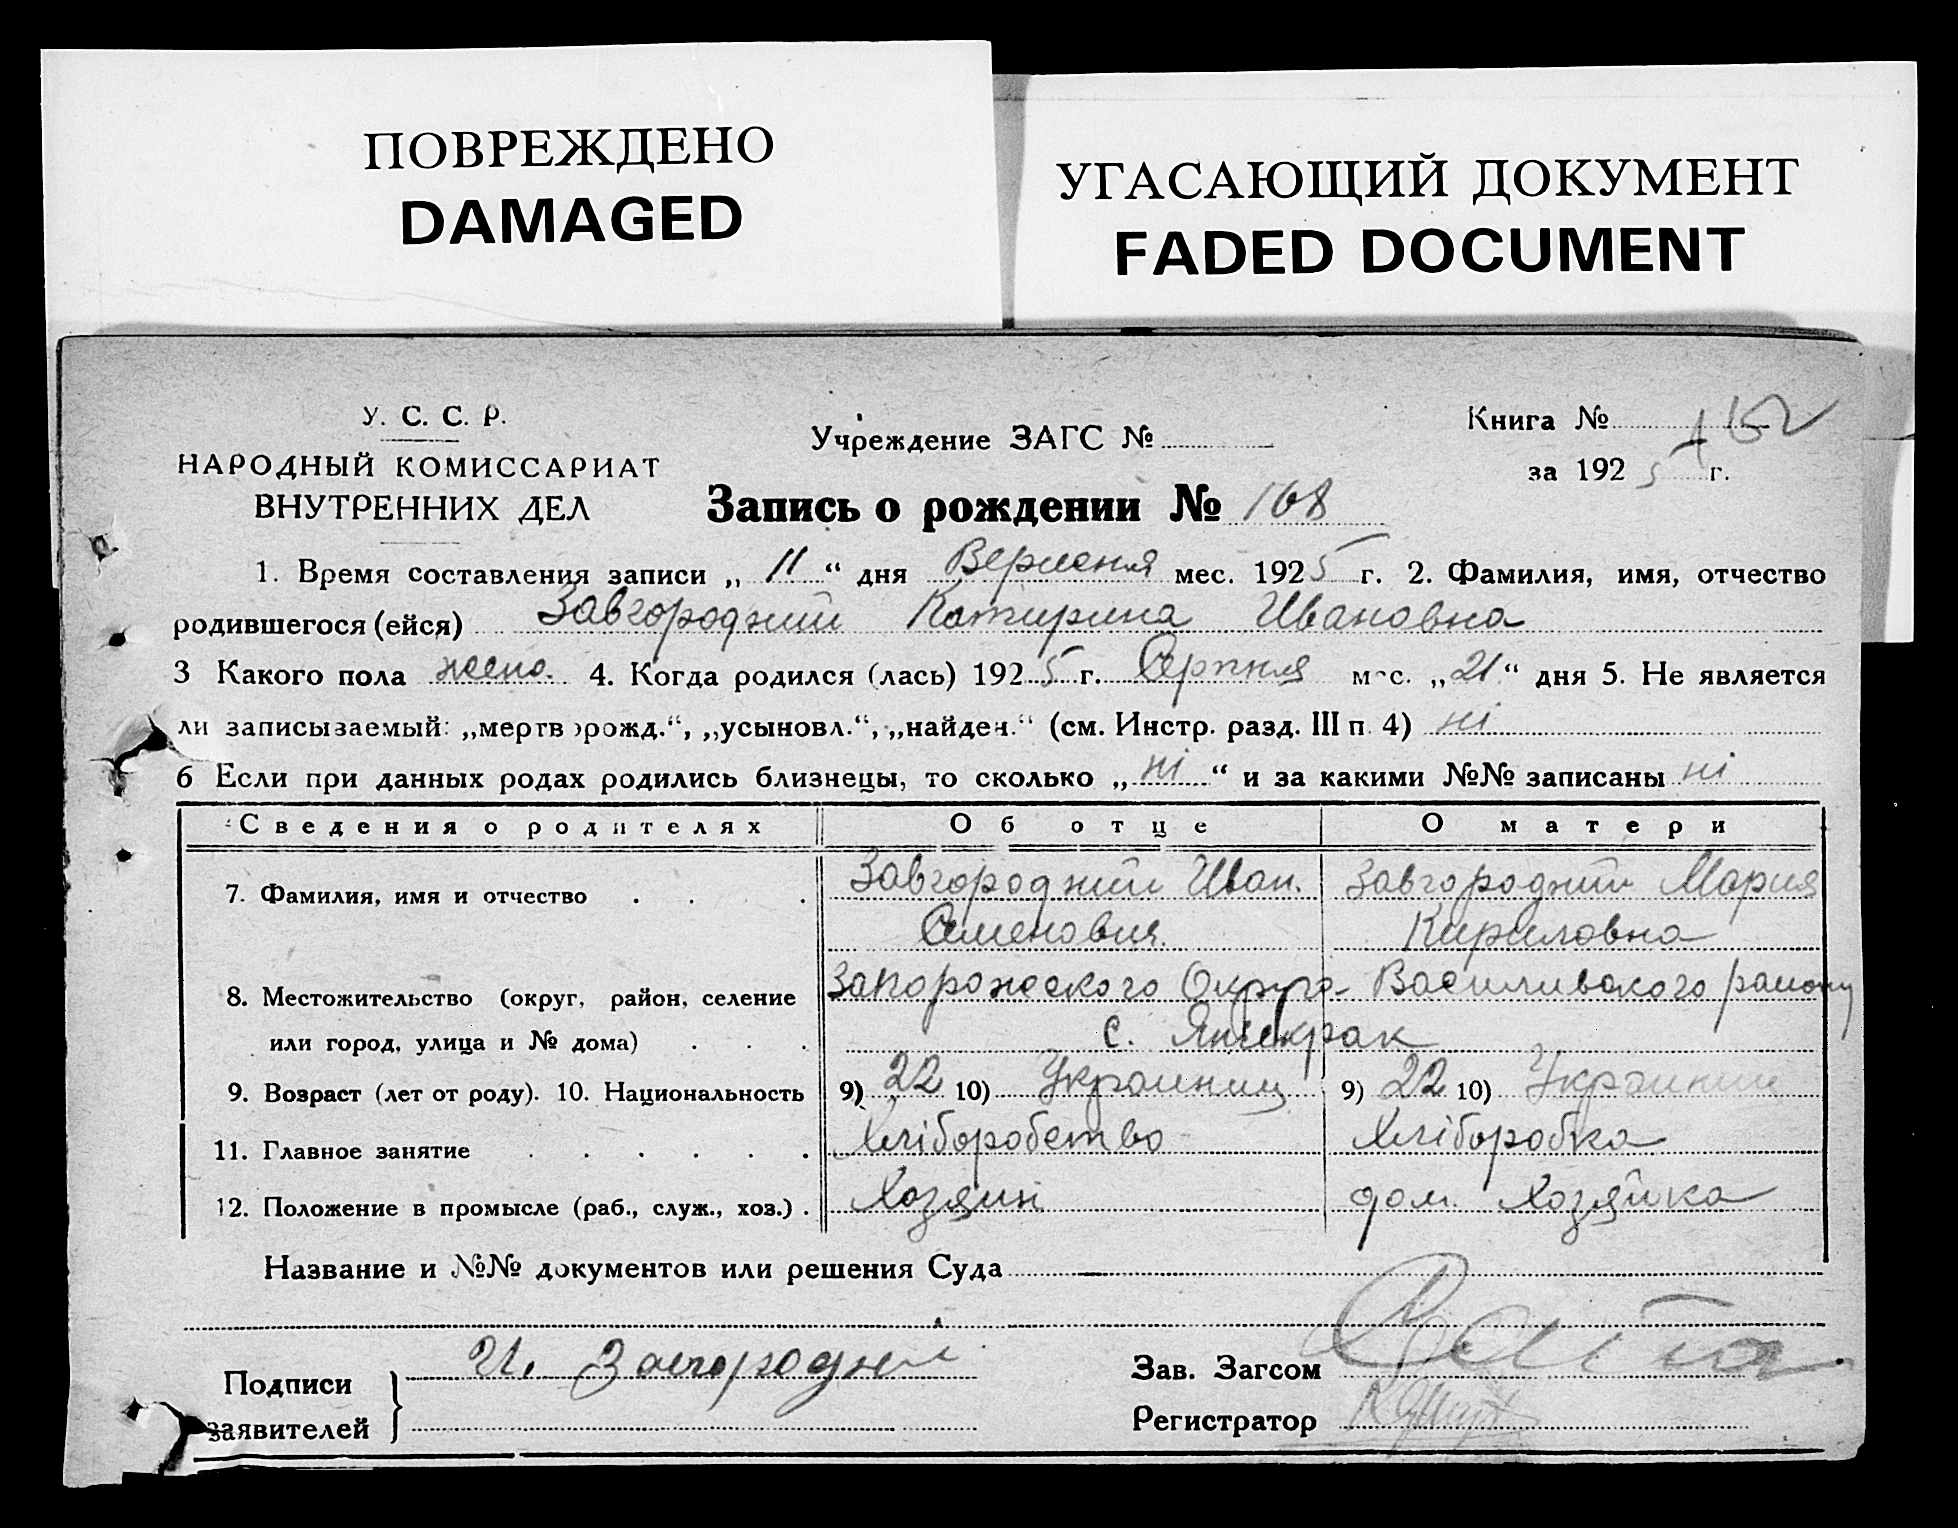 ПОВРЕЖДЕНО
DAMAGED
УГАСАЮЩИЙ ДОКУМЕНТ
FADED DOCUMENT
У. С. С. Р.
НАРОДНЫЙ КОМИССАРИАТ
ВНУТРЕННИХ ДЕЛ
Учреждение ЗАГС №
Книга №
за 1925 г.
Запись о рождении № 168
1. Время составления записи „ 11 “ дня Вересня мес. 1925 г. 2. Фамилия, имя, отчество
родившегося (ейся) Завгородний Катирина Ивановна
3 Какого пола жено. 4. Когда родился (лась) 1925 г. Серпня мес. „21“ дня 5. Не является
ли записываемый: „мертворожд.“, „усыновл.“, „найден.“ (см. Инстр. разд. III п. 4) ні
6 Если при данных родах родились близнецы, то сколько „ ні “ и за какими №№ записаны ні
Сведения о родителях Об отце О матери
7. Фамилия, имя и отчество . . . Завгородний Иван. Завгородний Мария
Семеновия Кириловна
8. Местожительство (округ, район, селение Запорожского Округа Василивского району
или город, улица и № дома) . . . с. Янчекрак
9. Возраст (лет от роду). 10. Национальность 9) 22 10) Украинец 9) 22 10) Украинец
11. Главное занятие . . . . . . Хліборобство Хліборобка
12. Положение в промысле (раб., служ., хоз.) . Хозяин дом. Хозяйка
Название и №№ документов или решения Суда
Подписи
заявителей
И. Завгородни
Зав. Загсом
Регистратор